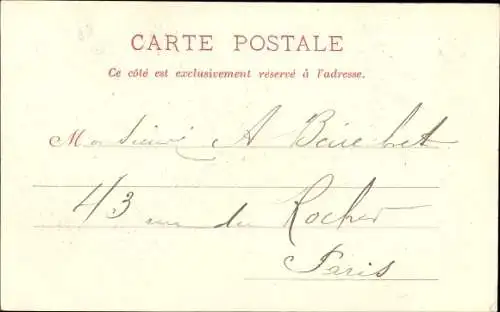 CARTE POSTALE
Ce côté est exclusivement réservé à l'adresse.
Monsieur A
43 rue du Rocher
Paris